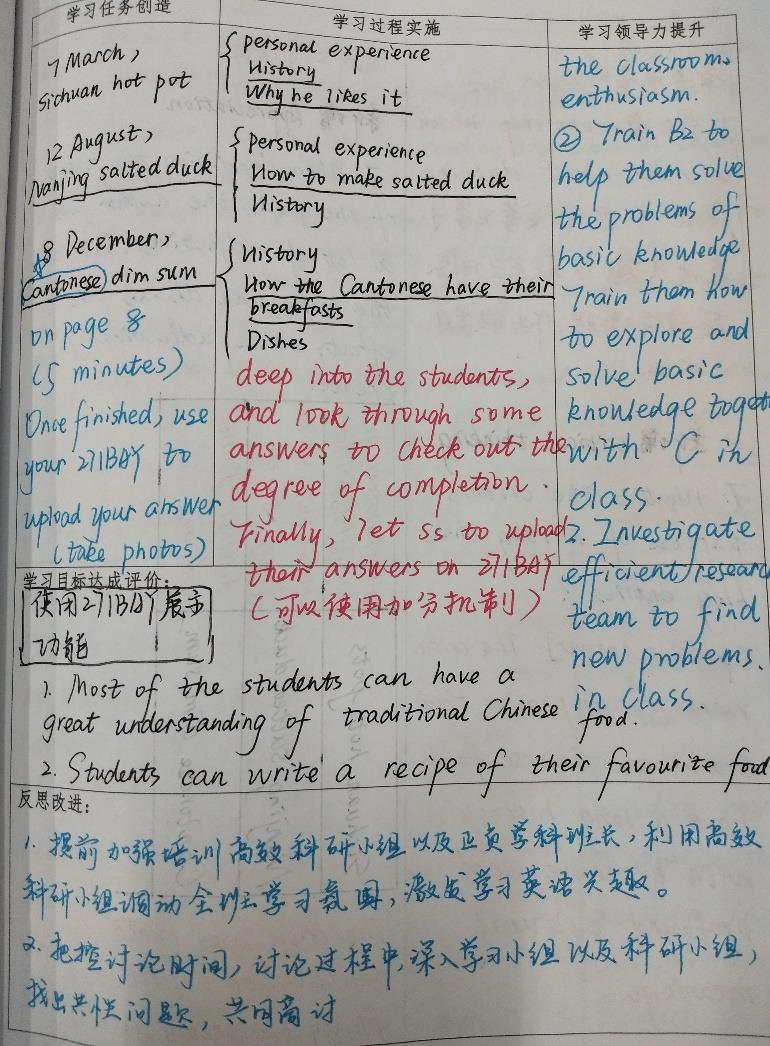 学习任务创造
7 March,
Sichuan hot pot
12 August,
Nanjing salted duck
8 December,
Cantonese dim sum
on page 8
(5 minutes)
Once finished, use
your 271BAY to
upload your answer
(take photos)
学习过程实施
personal experience
History
Why he likes it
personal experience
How to make salted duck
History
History
How the Cantonese have their
breakfasts
Dishes
deep into the students,
and look through some
answers to check out the
degree of completion.
Finally, let ss to upload
their answers on 271BAY
(可以使用加分机制)
学习领导力提升
the classroom.
enthusiasm.
② Train B2 to
help them solve
the problems of
basic knowledge
Train them how
to explore and
solve basic
knowledge toget
with C in
class.
2. Investigate
efficient researc
team to find
new problems.
in class.
学习目标达成评价:
使用271BAY展示
功能
1. Most of the students can have a
great understanding of traditional Chinese food.
2. Students can write a recipe of their favourite food
反思改进:
1. 提前加强培训高效科研小组以及正负学科班长,利用高效
科研小组调动全班学习氛围,激发学习英语兴趣。
2. 把控讨论时间,讨论过程中,深入学习小组以及科研小组,
找出共性问题,共同商讨